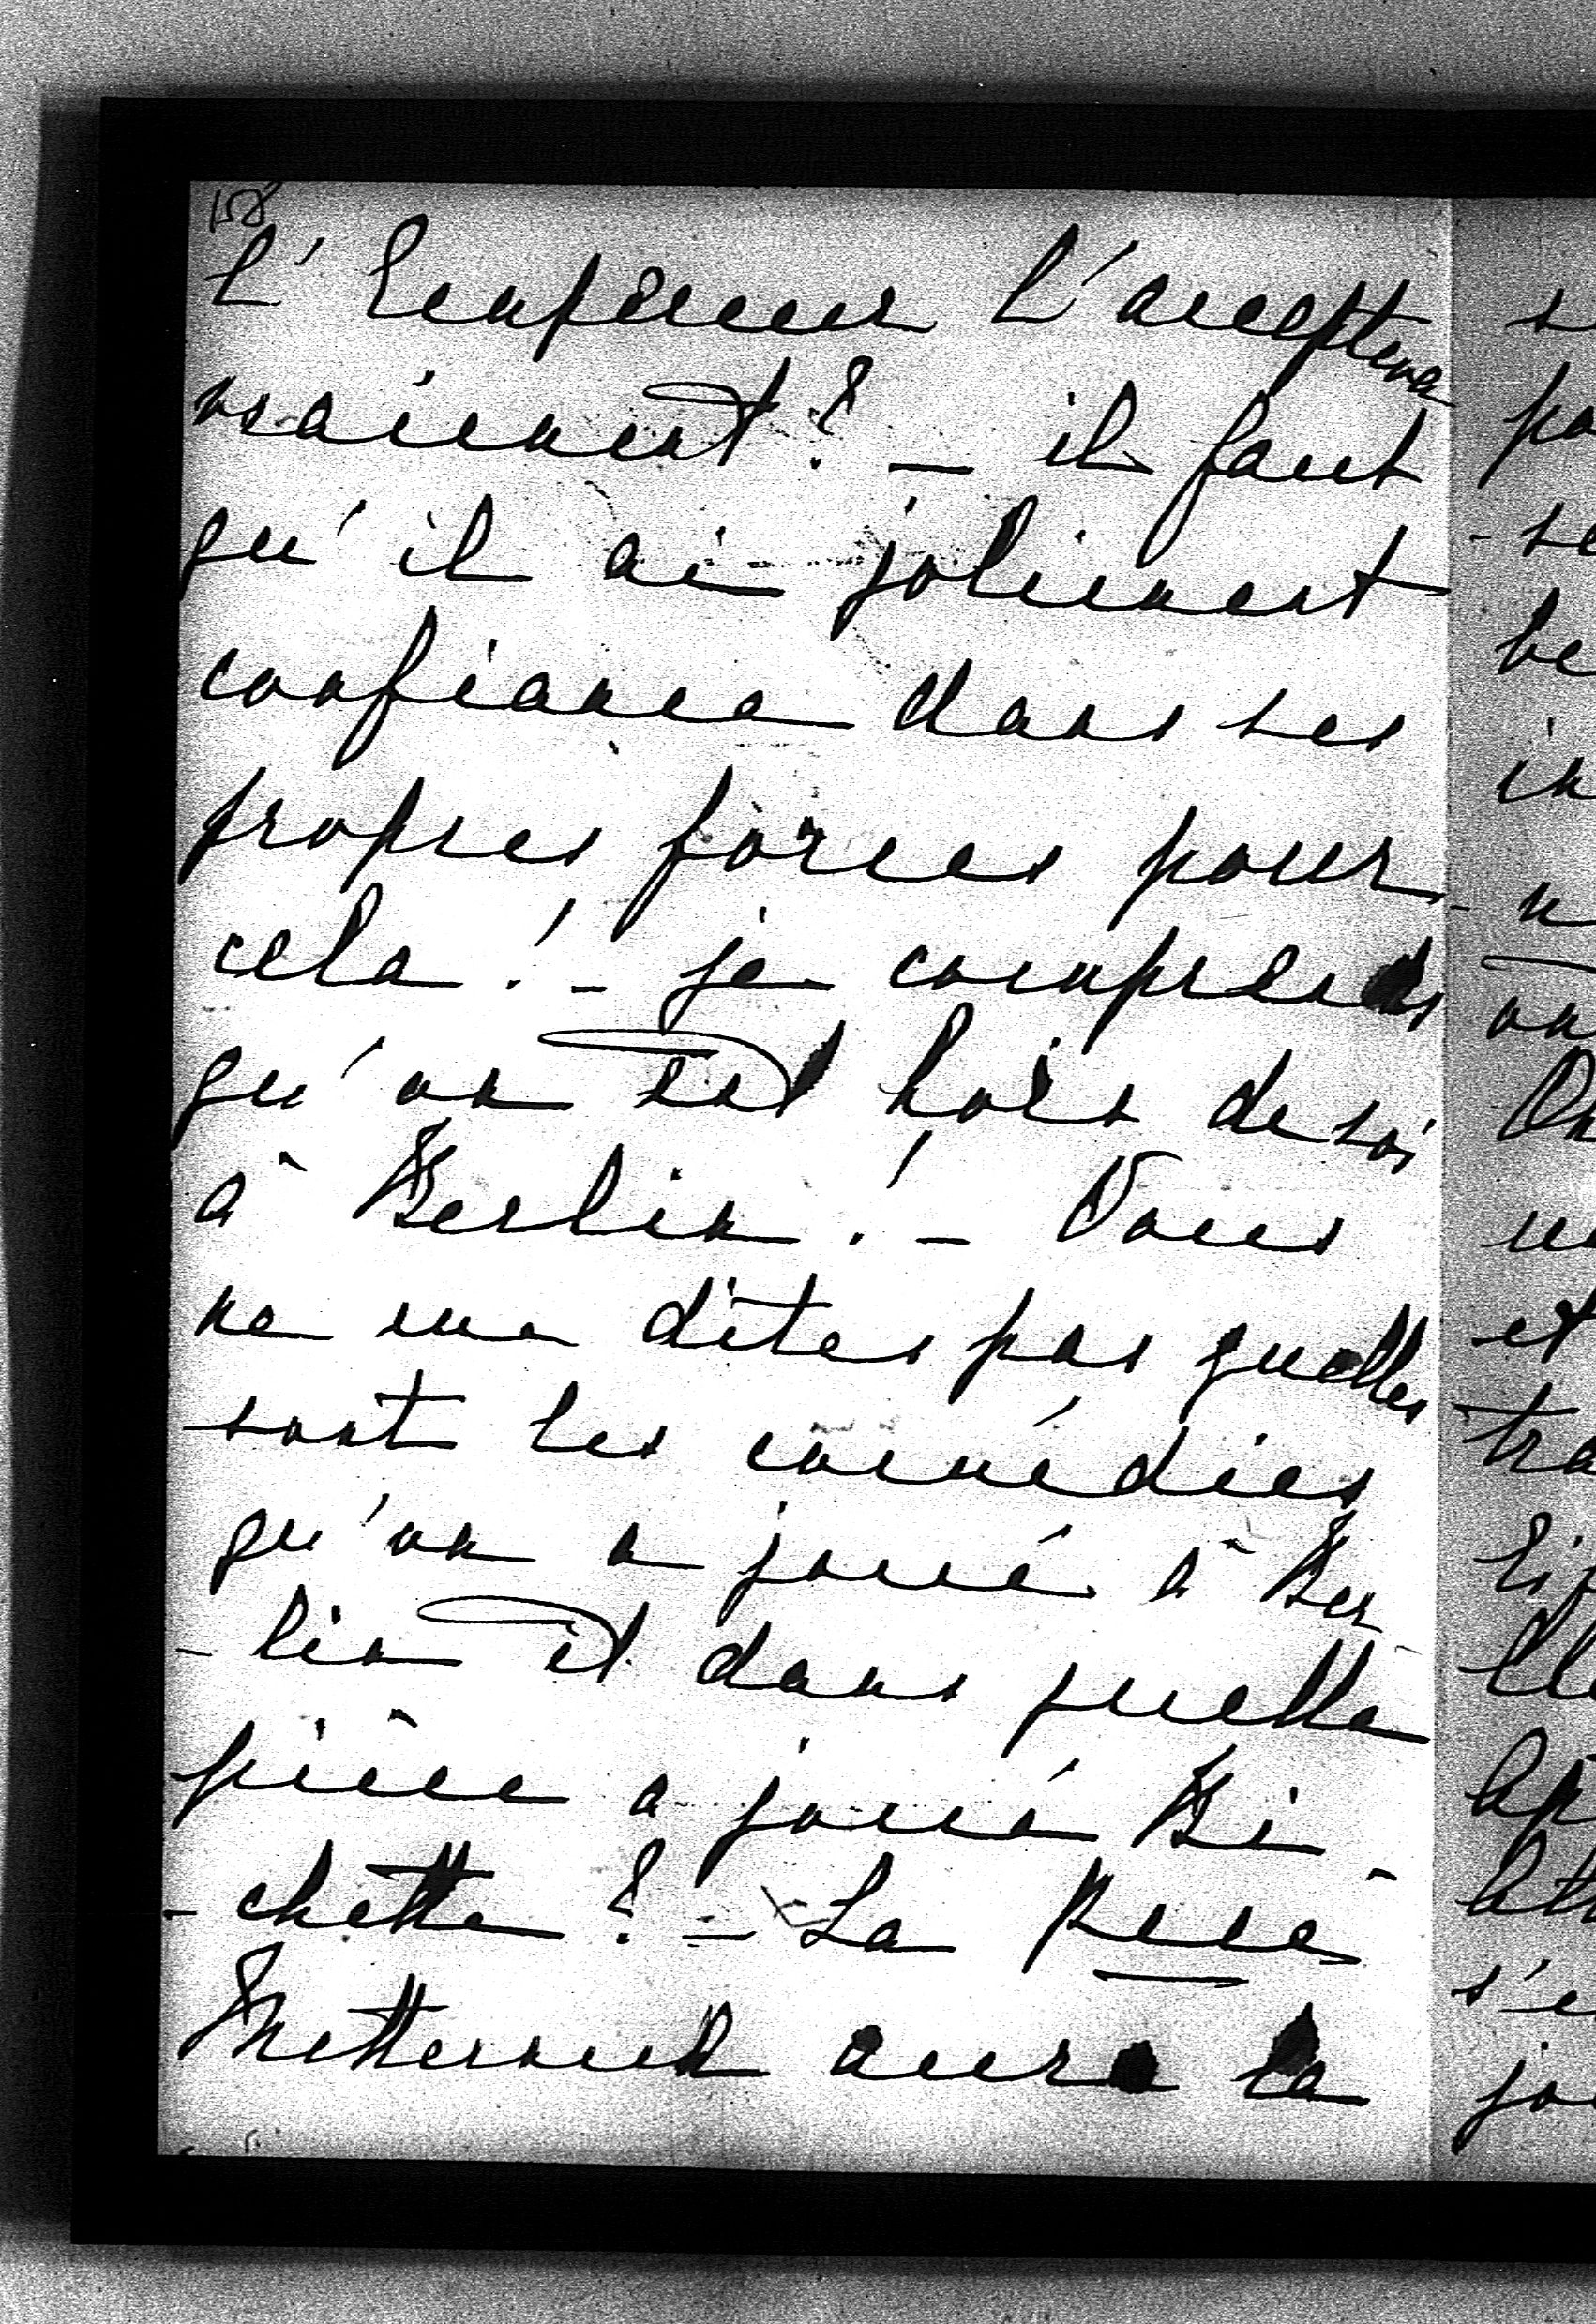 158
L'Empereur l'acceptera
vraiment? – il faut
qu'il ai joliment
confiance dans ses
propres forces pour
cela! – je comprends
qu'on est hors de soi
à Berlin! – Vous
ne me dites pas quelles
sont les comédies
qu'on a joué à Ber-
-lin et dans quelle
pièce a joué Bi-
-chette? – La
Metternich aura la